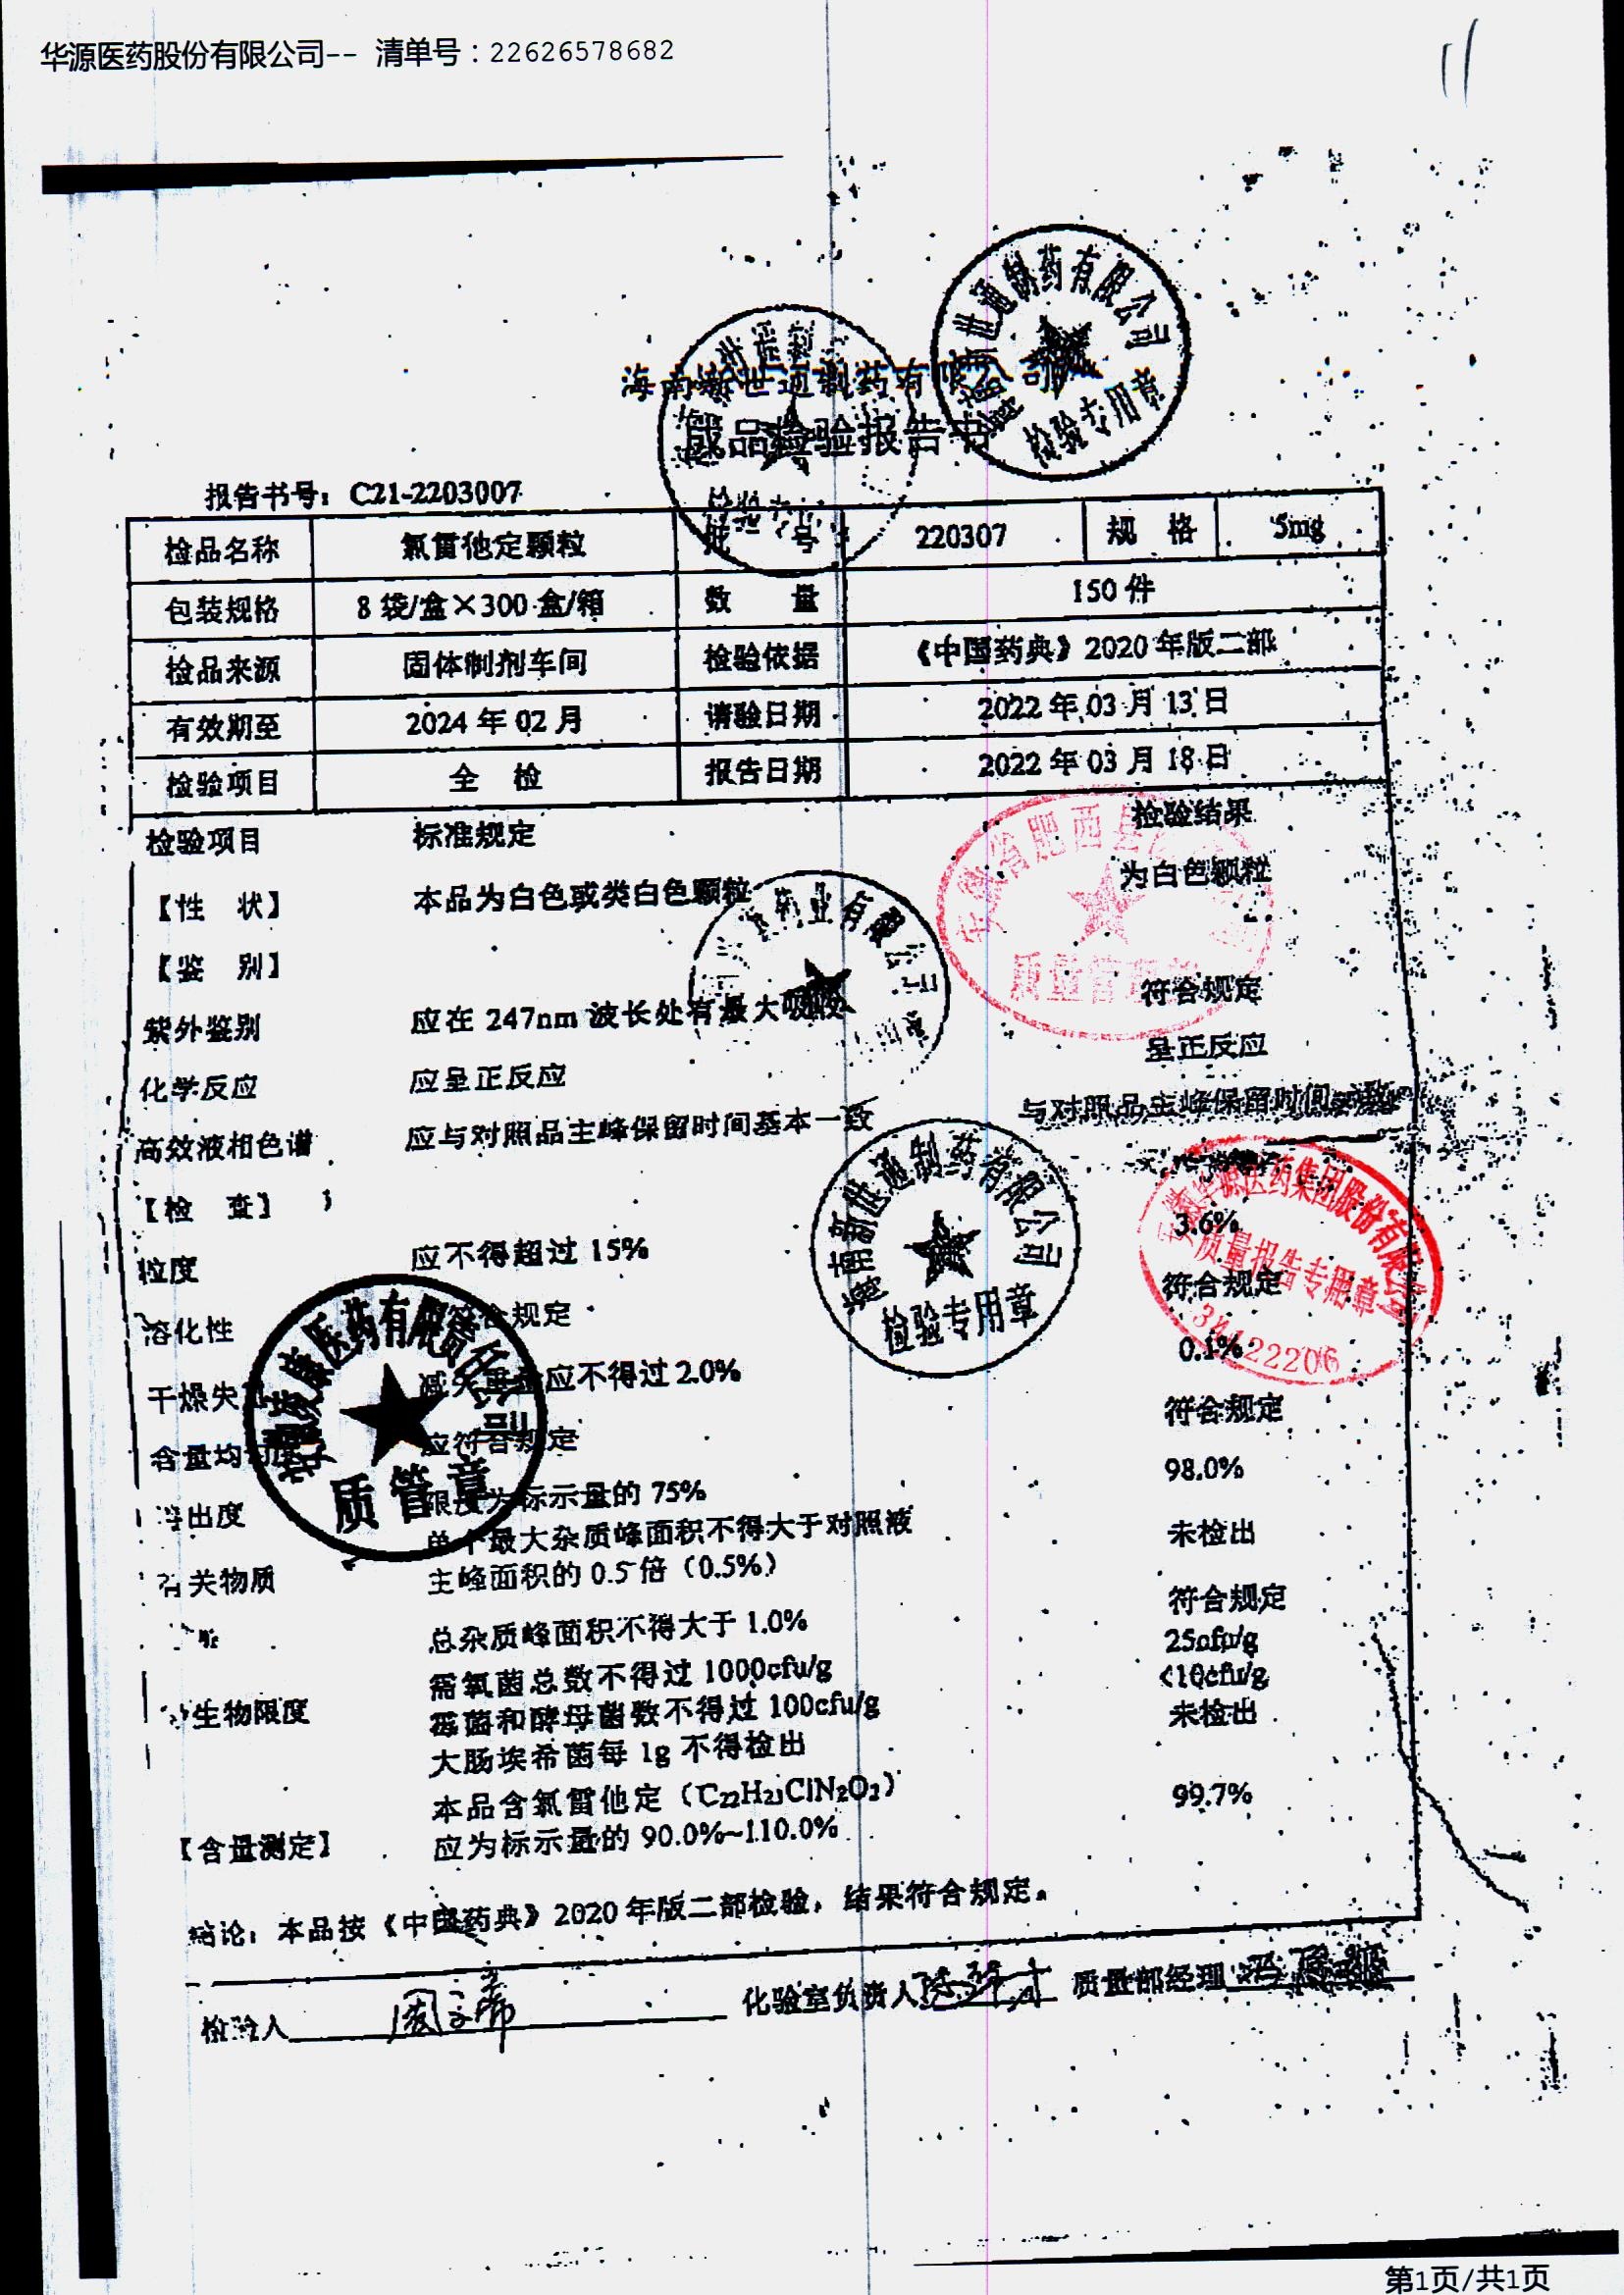 华源医药股份有限公司-- 清单号：22626578682
11
海南新世通制药有限公司
成品检验报告书
报告书号：C21-2203007
检品名称 氯雷他定颗粒 批 号 220307 规 格 5mg
包装规格 8 袋/盒×300 盒/箱 数 量 150 件
检品来源 固体制剂车间 检验依据 《中国药典》2020 年版二部
有效期至 2024 年 02 月 请验日期 2022 年 03 月 13 日
检验项目 全 检 报告日期 2022 年 03 月 18 日
检验项目 标准规定 检验结果
【性 状】 本品为白色或类白色颗粒 为白色颗粒
【鉴 别】
紫外鉴别 应在 247nm 波长处有最大吸收 符合规定
化学反应 应呈正反应 呈正反应
高效液相色谱 应与对照品主峰保留时间基本一致 与对照品主峰保留时间
【检 查】
粒度 应不得超过 15% 3.6%
溶化性 符合规定 符合规定
干燥失 减失 应不得过 2.0% 0.1%
含量均匀度 应符合规定 符合规定
溶出度 限度为标示量的 75% 98.0%
有关物质 单个最大杂质峰面积不得大于对照液 未检出
主峰面积的 0.5 倍（0.5%）
总杂质峰面积不得大于 1.0% 符合规定
需氧菌总数不得过 1000cfu/g 25cfu/g
微生物限度 霉菌和酵母菌数不得过 100cfu/g <10cfu/g
大肠埃希菌每 1g 不得检出 未检出
本品含氯雷他定（C22H23ClN2O2） 99.7%
【含量测定】 应为标示量的 90.0%~110.0%
结论：本品按《中国药典》2020 年版二部检验，结果符合规定。
检验人 化验室负责人 质量部经理
海南新世通制药有限公司
检验专用章
海南新世通制药有限公司
检验专用章
药业有限公司
安徽省肥西县
质量管理
安徽华源医药集团股份有限公司
质量报告专用章
34122206
医药有限责任公司
质管章
第1页/共1页